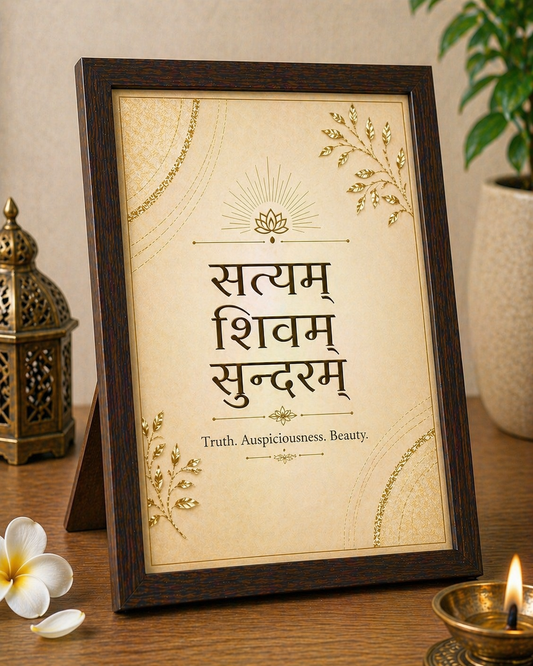 सत्यम्
शिवम्
सुन्दरम्
Truth. Auspiciousness. Beauty.